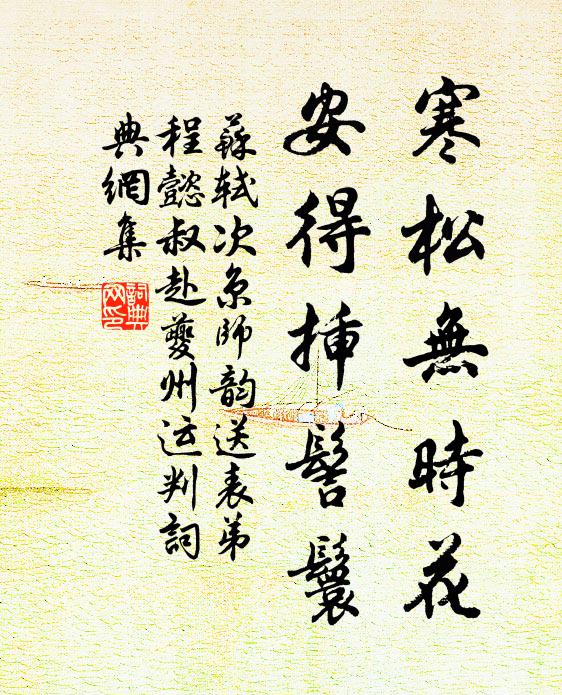 寒松無時花
安得插髻鬟
蘇軾次京師韵送表弟
程懿叔赴夔州运判詞
典網集
詞典网印